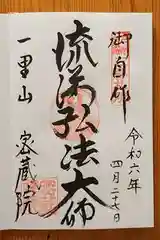 御自作
令和六年
四月二十七日
流涕弘法大師
一里山
密蔵院